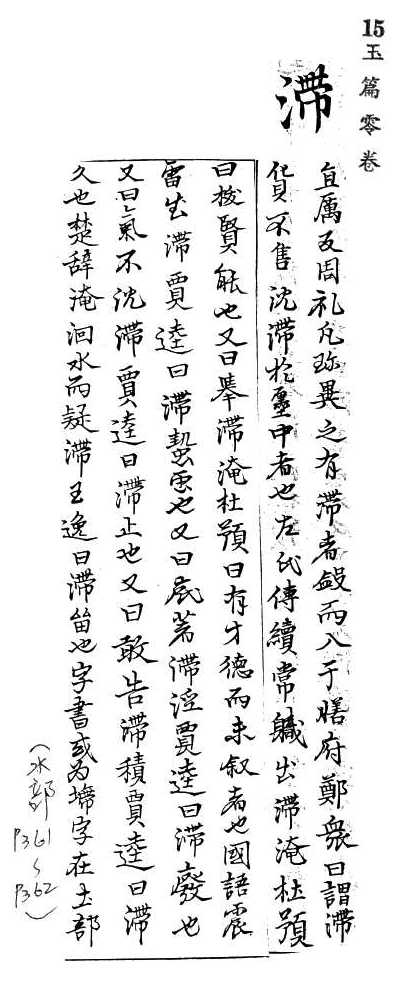 15玉篇零卷
滯
直厲反周礼凡珎異之有滯者斂而入于膳府鄭衆曰謂滯
貨不售沈滯於廛中者也左氏傳續常軄出滯淹杜預
曰拔賢能也又曰舉滯淹杜預曰有才德而未叙者也國語震
雷出滯賈逵曰滯蟄虫也又曰底著滯淫賈逵曰滯廢也
又曰氣不沈滯賈逵曰滯止也又曰敢告滯積賈逵曰滯
久也楚辞淹洄水而疑滯王逸曰滯留也字書或為墆字在土部
(水部
P361~
P362)